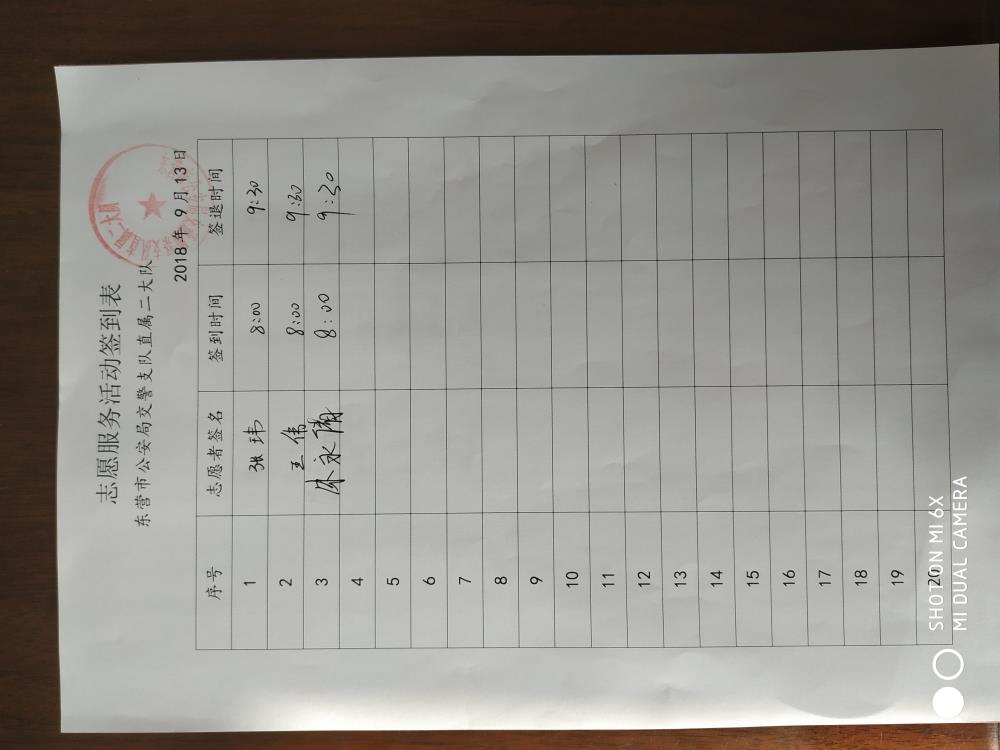 志愿服务活动签到表
东营市公安局交警支队直属二大队
2018年9月13日
序号 志愿者签名 签到时间 签退时间
1 张玮 8:00 9:30
2 王伟 8:00 9:30
3 8:00 9:30
4
5
6
7
8
9
10
11
12
13
14
15
16
17
18
19
20
SHOT ON MI 6X
MI DUAL CAMERA